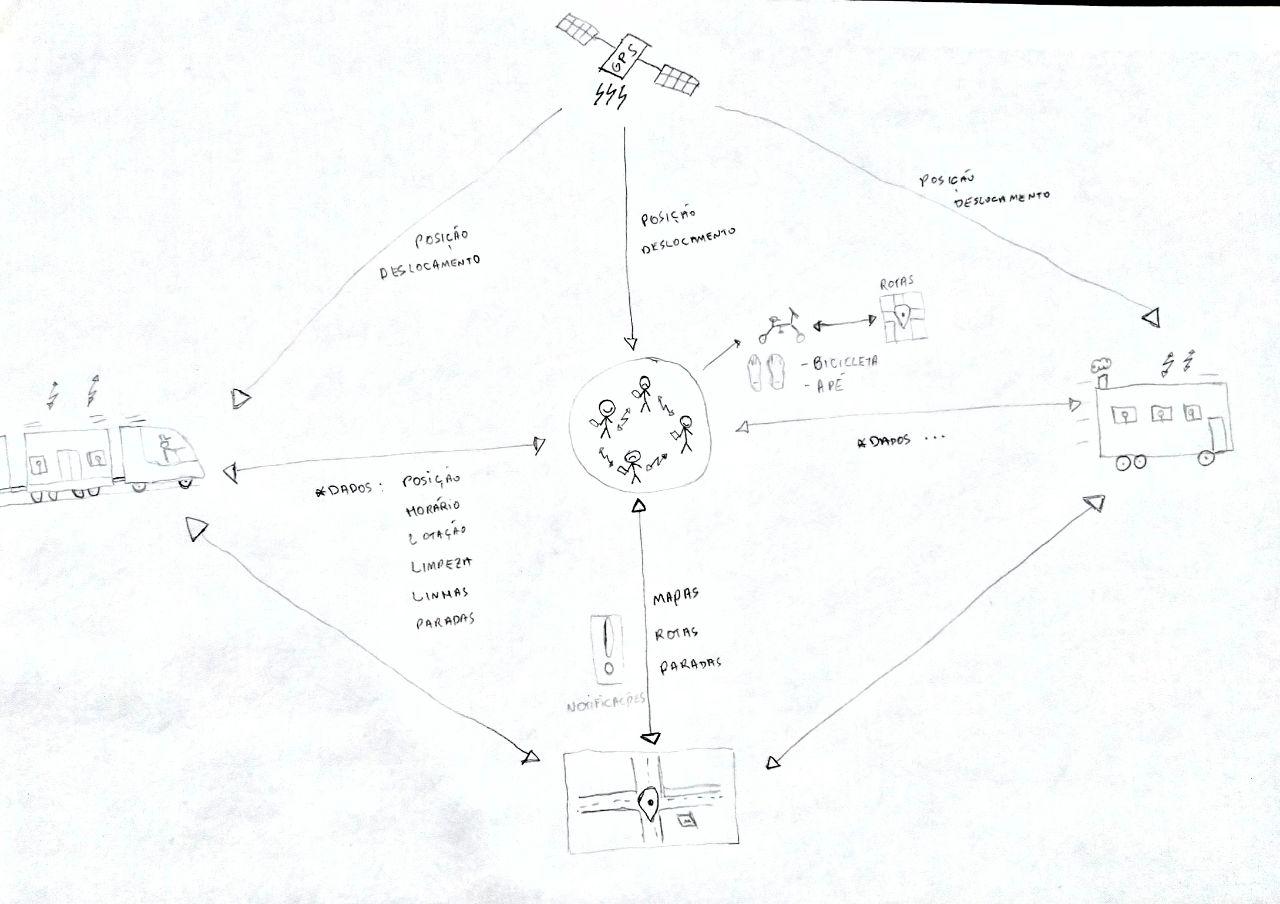 GPS
POSIÇÃO
DESLOCAMENTO
POSIÇÃO
DESLOCAMENTO
POSIÇÃO
DESLOCAMENTO
ROTAS
- BICICLETA
- APÉ
*DADOS ...
*DADOS: POSIÇÃO
HORÁRIO
LOTAÇÃO
LIMPEZA
LINHAS
PARADAS
MAPAS
ROTAS
PARADAS
NOTIFICAÇÕES